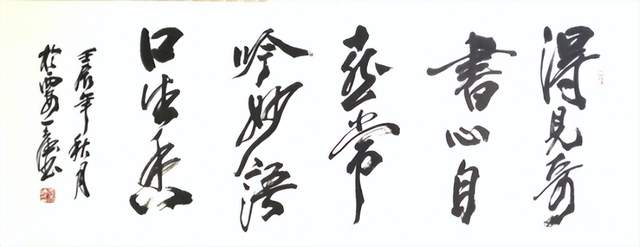 得見奇
書心自
燕常
吟妙語
口生香
壬辰年秋月
於西安